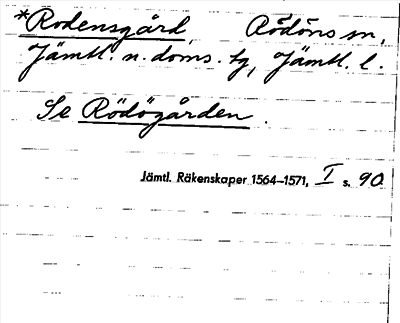 *Rodensgård Rödöns sn,
Jämtl. n. doms. tg, Jämtl. l.
Se Rödögården.
Jämtl. Räkenskaper 1564–1571, I s. 90